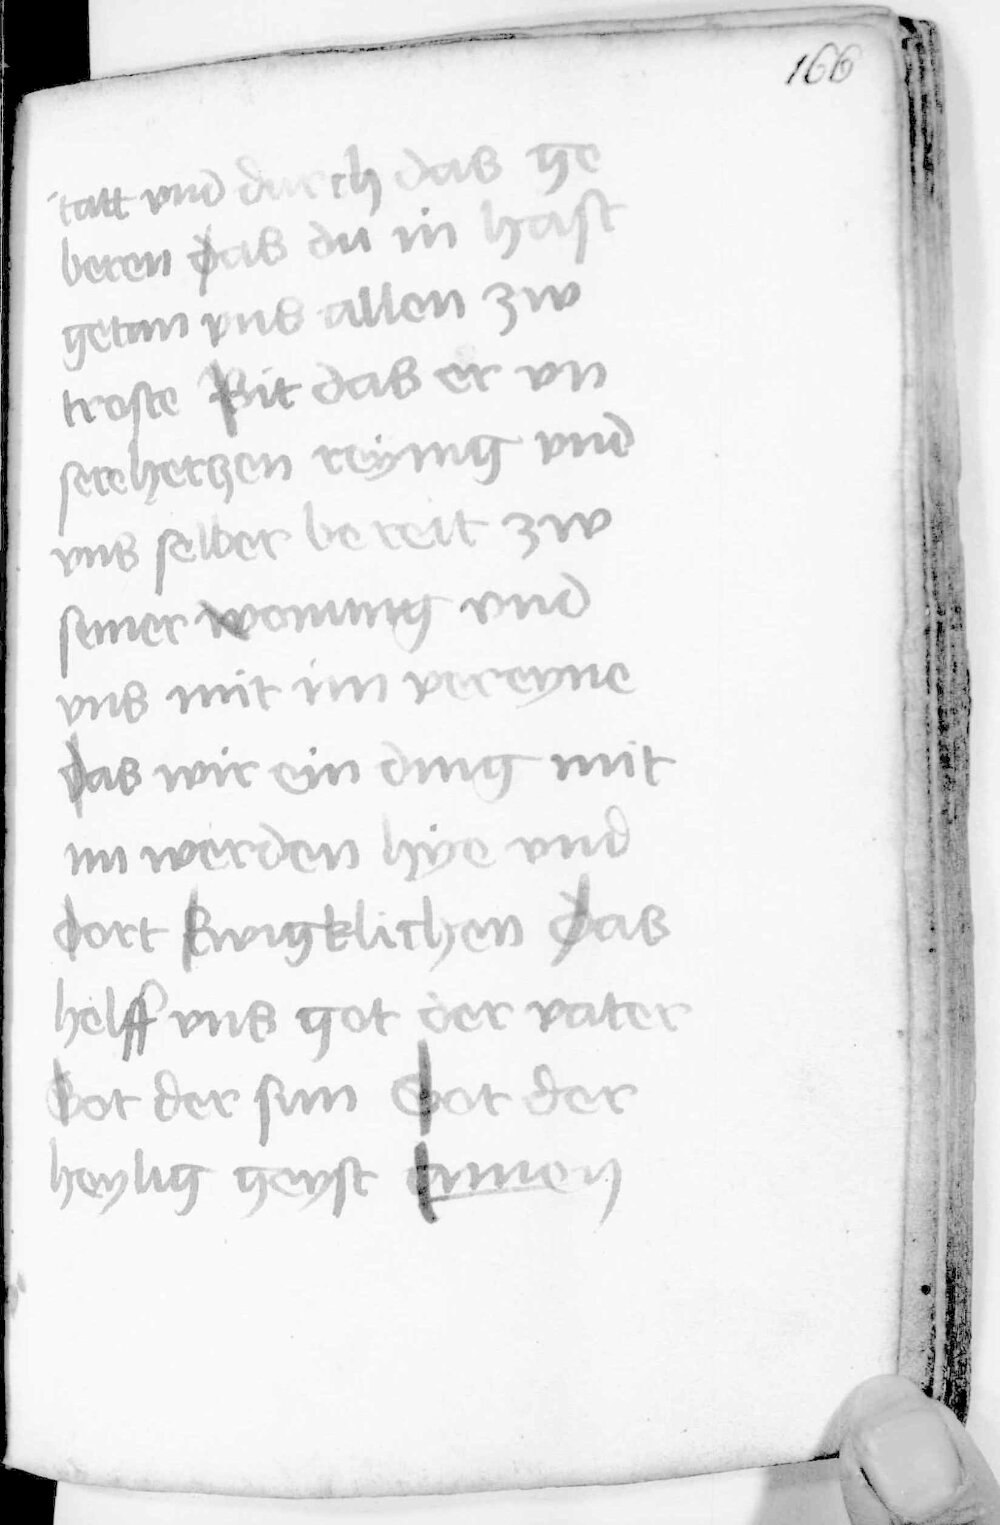 166
tatt vnd durch das ge
beren das du in hast
getan vns allen zw
troste Bit das er vn
sere hertzen reÿnig vnd
vns selber bereit zw
seiner wonung vnd
vns mit im vereyne
das wir ein ding mit
im werden hÿe vnd
dort Ewigklichen Das
helff vns got der vater
Got der sun Got der
heylig geyst amen